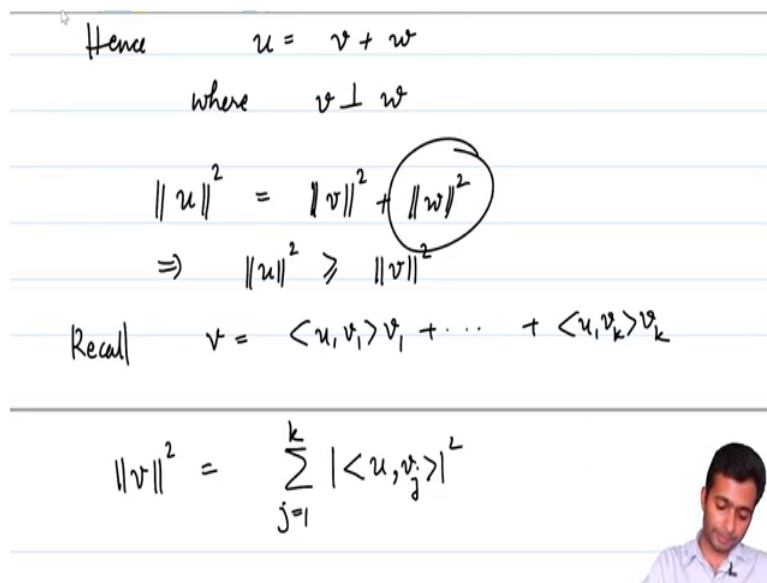 Hence u = v + w
where v ⊥ w
||u||² = ||v||² + ||w||²
⇒ ||u||² ⩾ ||v||²
Recall v = <u, v₁>v₁ + ··· + <u, vₖ>vₖ
||v||² = ∑ⱼ₌₁ᵏ |<u, vⱼ>|²